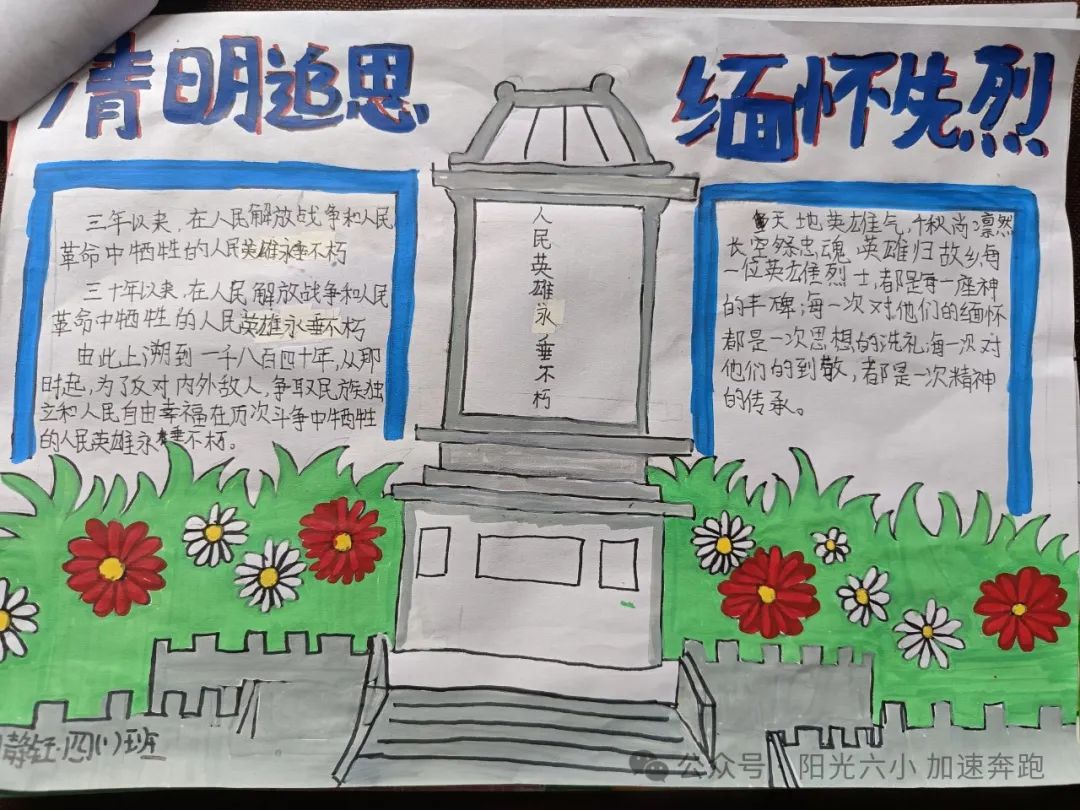 清明追思
缅怀先烈
三年以来，在人民解放战争和人民
革命中牺牲的人民英雄永垂不朽
三十年以来，在人民解放战争和人民
革命中牺牲的人民英雄永垂不朽
由此上溯到一千八百四十年，从那
时起，为了反对内外敌人，争取民族独
立和人民自由幸福在历次斗争中牺牲
的人民英雄永垂不朽。
人民英雄永垂不朽
天地英雄气，千秋尚凛然
长空祭忠魂，英雄归故乡，每
一位英雄烈士，都是每一座神
的丰碑；每一次对他们的缅怀
都是一次思想的洗礼海一次对
他们的到敬，都是一次精神
的传承。
静钰·四(1)班
公众号 阳光六小 加速奔跑